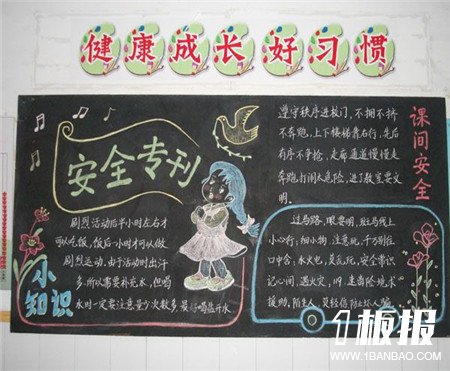 健康成长好习惯
安全专刊
剧烈活动后半小时左右才
可以吃饭,饭后一小时才可以做
剧烈运动,由于活动时出汗
多,所以需要补充水,但喝
水时一定要注意量少次数多,最好喝盐开水
小知识
遵守秩序进校门,不拥不挤
不奔跑,上下楼梯靠右行,先后
有序不争抢,走廊通道慢慢走
奔跑打闹太危险,进了教室要文
明。
课间安全
过马路,眼要明,斑马线上
小心行,细小物,注意玩,千万别往
口中含,水火电,莫乱玩,安全常识
记心间,遇火灾,119,走出险境求
援助,陌生人,莫轻信,防止坏人骗
1板报
WWW.1BANBAO.COM